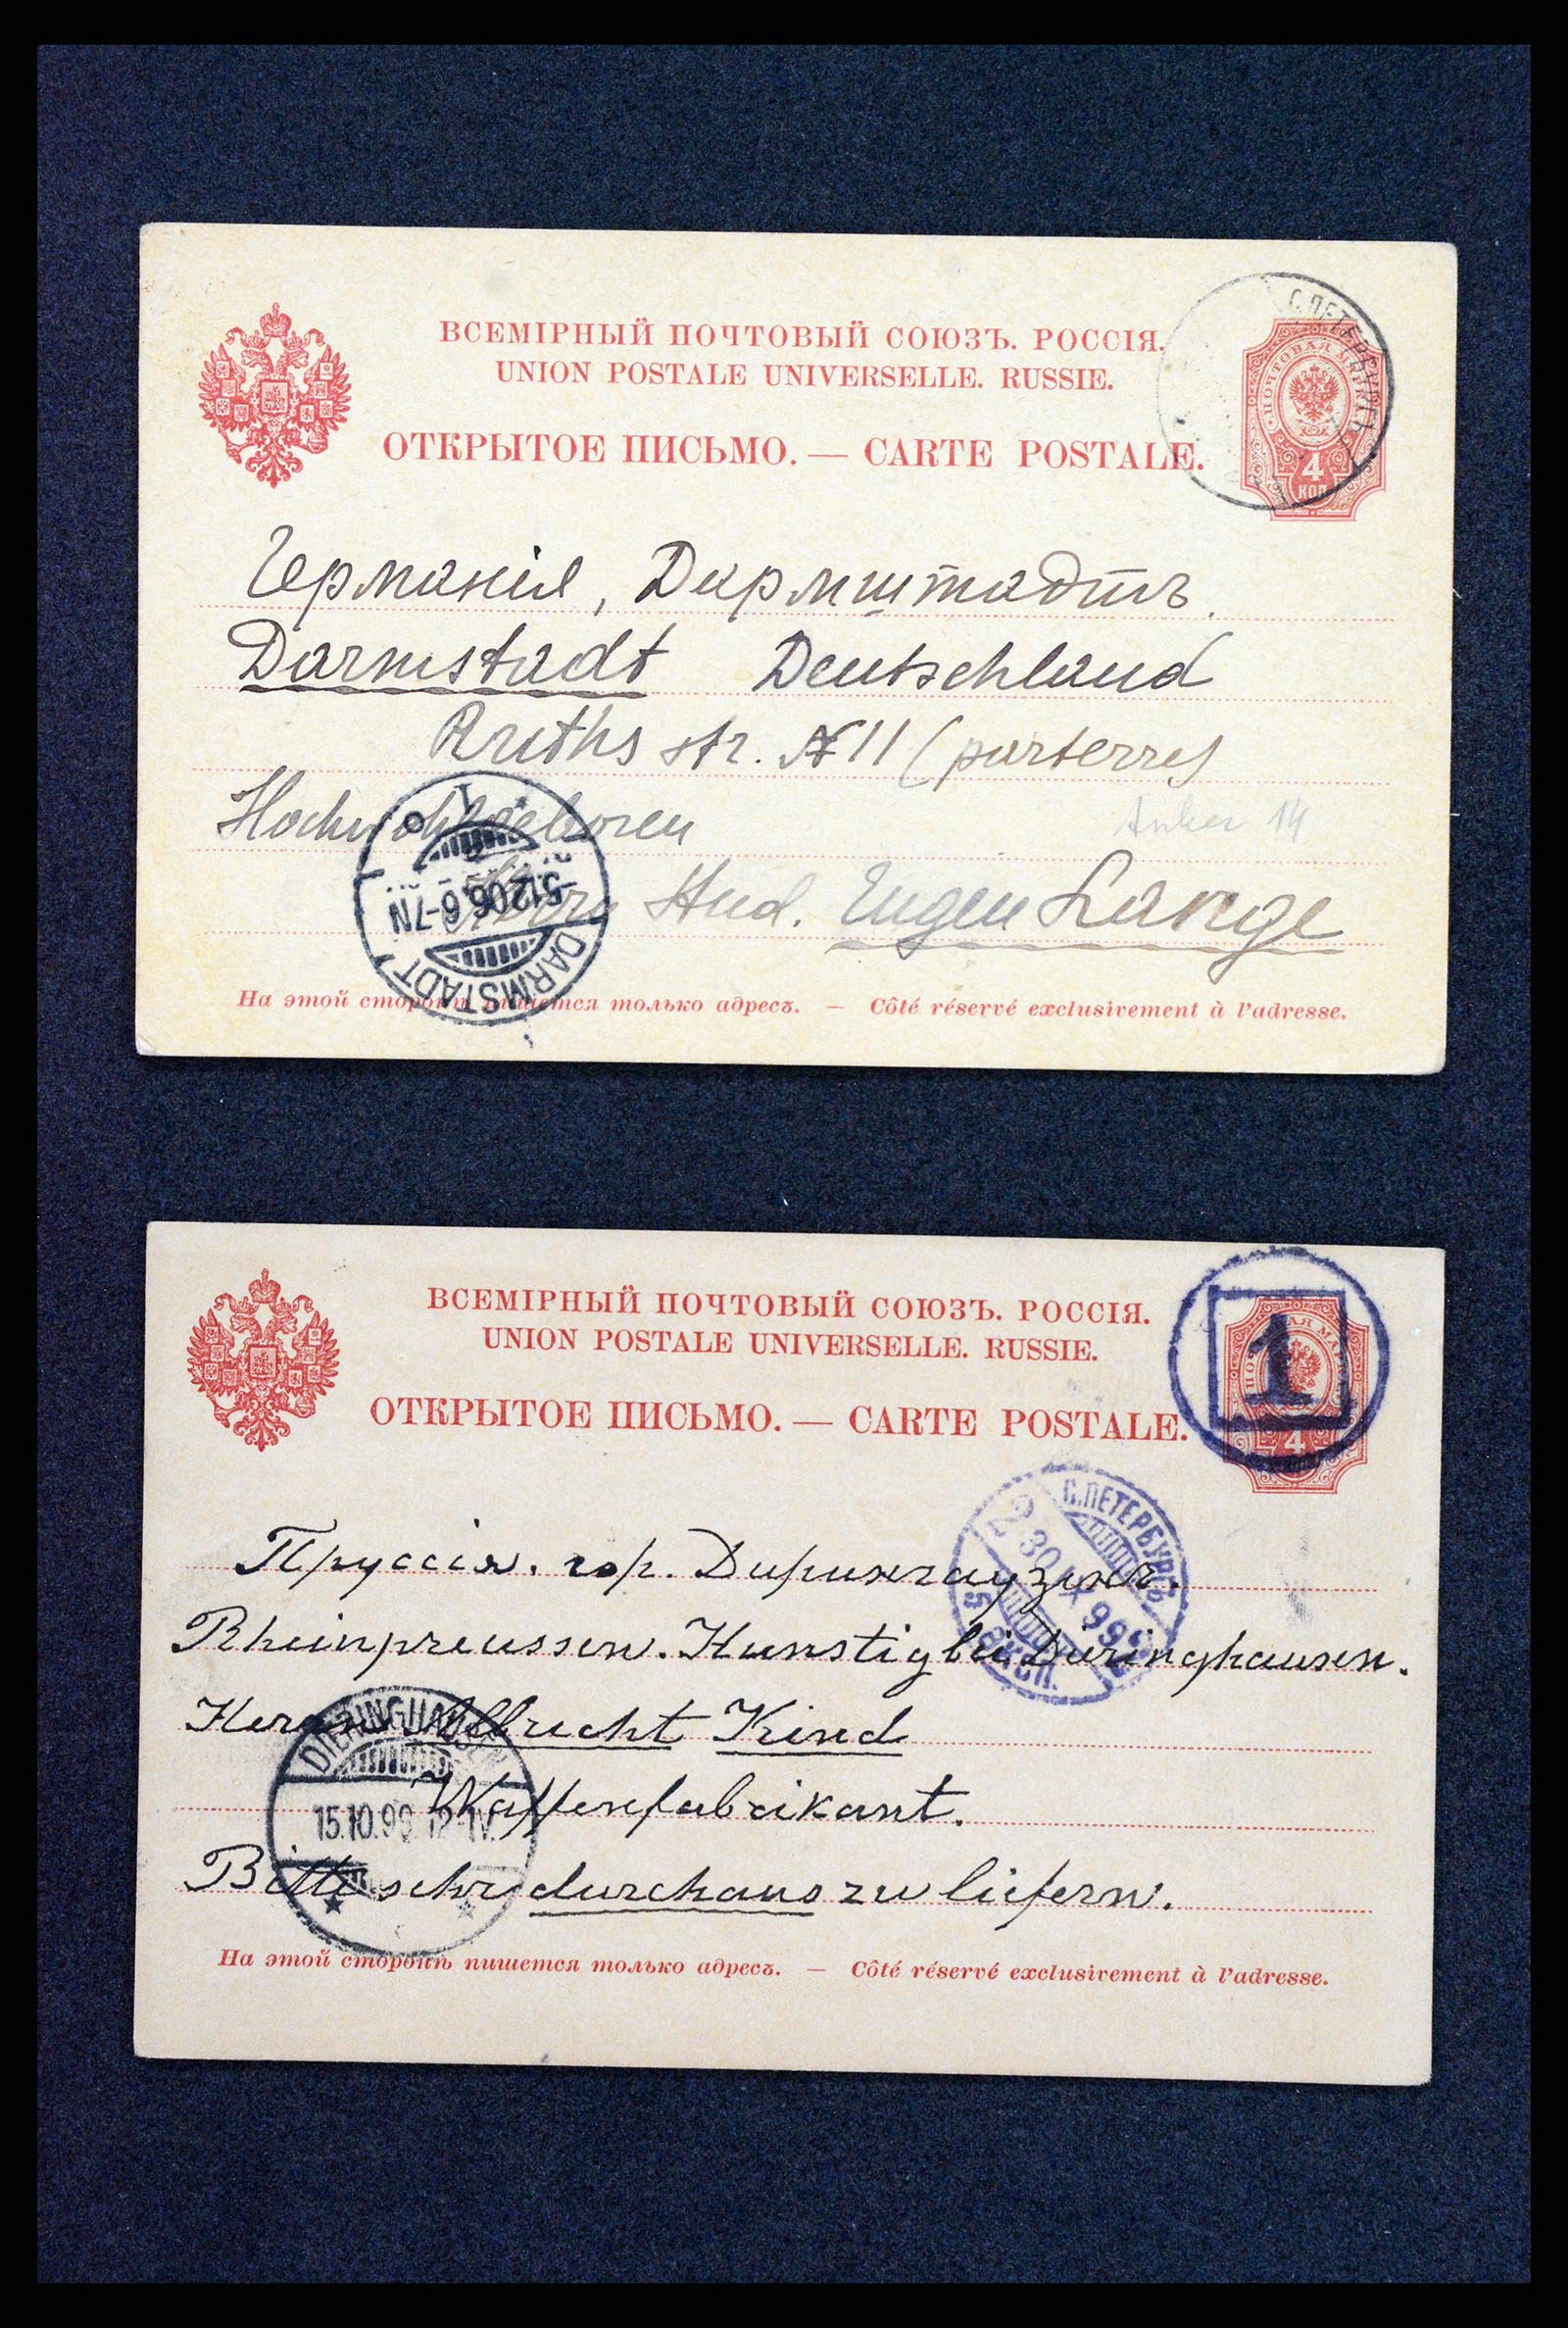 ВСЕМІРНЫЙ ПОЧТОВЫЙ СОЮЗЪ. РОССІЯ.
UNION POSTALE UNIVERSELLE. RUSSIE.
ОТКРЫТОЕ ПИСЬМО. — CARTE POSTALE.
С. ПЕТЕРБУРГЪ
ПОЧТОВАЯ МАРКА
4
КОП
Германія, Дармштадтъ.
Darmstadt Deutschland
Ruths str. № 11 (parterre)
Hochwohlgeboren
Anker 14
Herrn Stud. Eugen Lange
5.12.06. 6-7N
DARMSTADT
На этой сторонѣ пишется только адресъ. — Côté réservé exclusivement à l'adresse.
ВСЕМІРНЫЙ ПОЧТОВЫЙ СОЮЗЪ. РОССІЯ.
UNION POSTALE UNIVERSELLE. RUSSIE.
ОТКРЫТОЕ ПИСЬМО. — CARTE POSTALE.
1
4
С. ПЕТЕРБУРГЪ
30 IX 99
5 ЭКСП.
Пруссія. гор. Дирингаузенъ.
Rheinpreussen. Hunstig bei Dieringhausen.
Herrn Albrecht Kind
Waffenfabrikant.
Bitte sehr durchaus zu liefern.
DIERINGHAUSEN
15.10.99 12-1N.
На этой сторонѣ пишется только адресъ. — Côté réservé exclusivement à l'adresse.